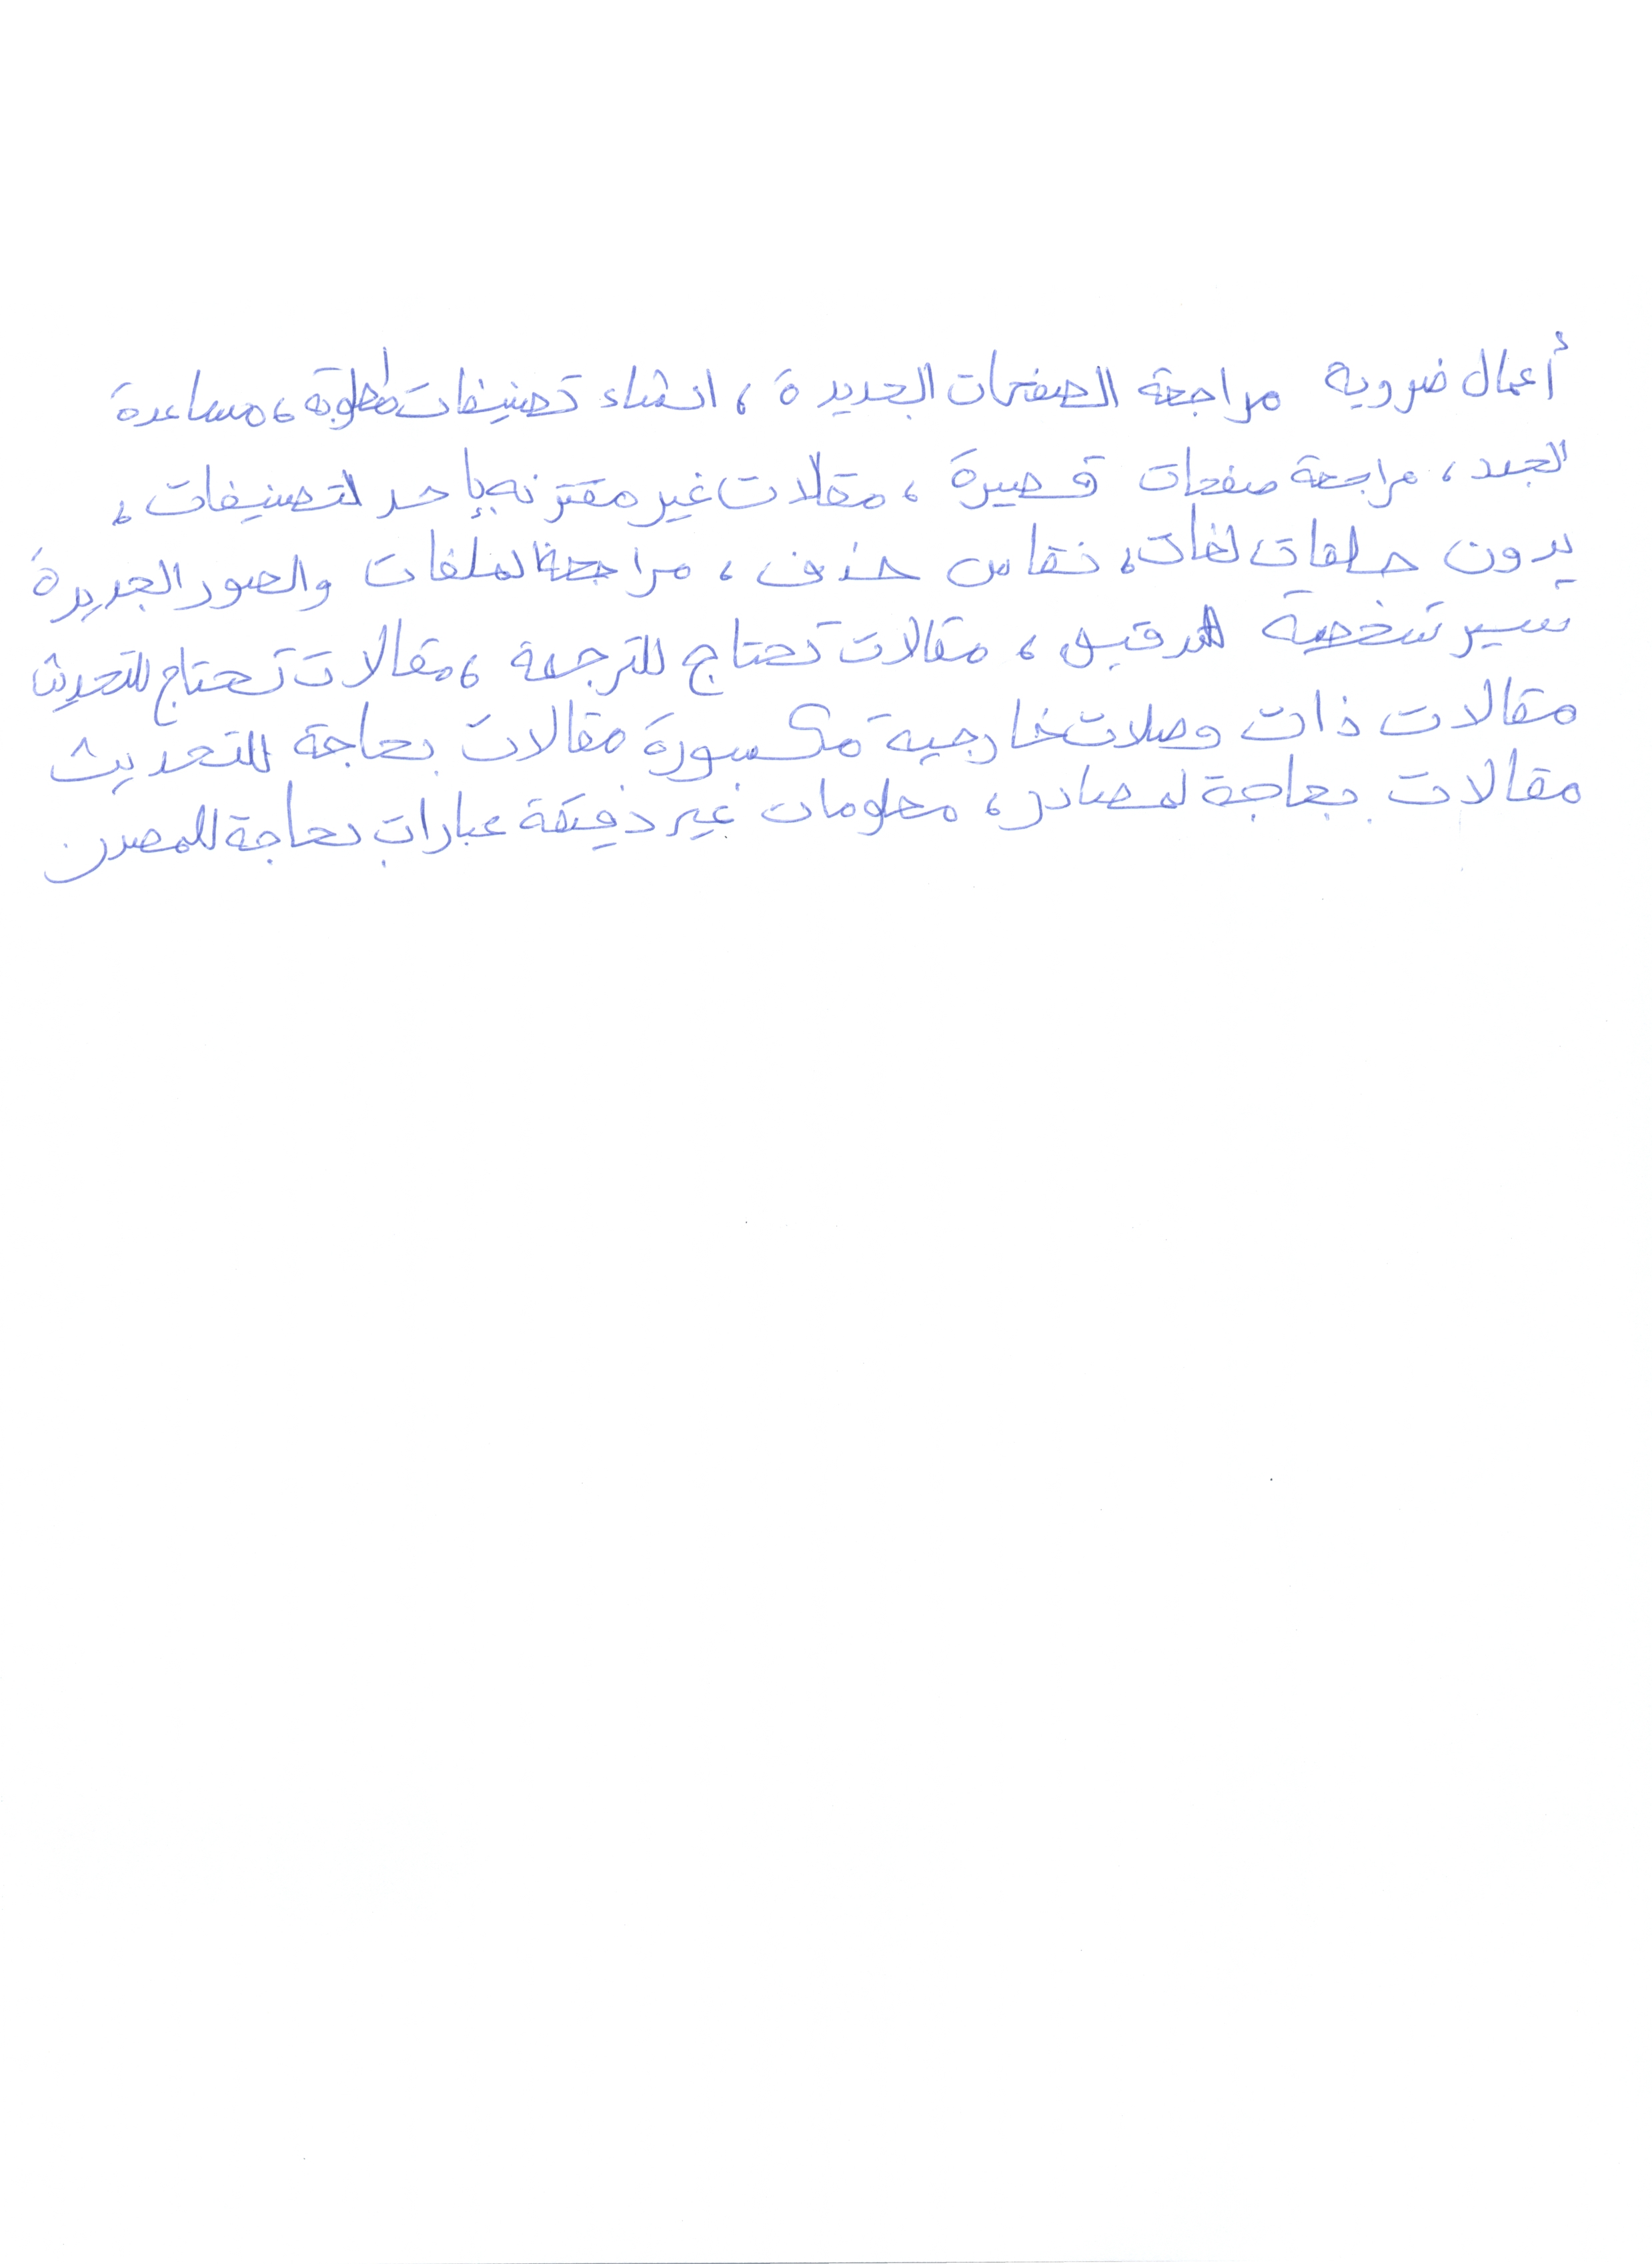 أعمال ضروريه مراجعة الصفحات الجديدة، انشاء تصنيفات مطلوبة، مساعدة
الجدد، مراجعة صفحات قصيرة، مقالات غير مقترنه بإحد التصنيفات،
بدون حلقات لغات، نقاش حذف، مراجعة الملفات والصور الجديدة
سير شخصية للتدقيق، مقالات تحتاج للترجمة، مقالات تحتاج للتحديث
مقالات ذات وصلات خارجية مكسورة مقالات بحاجة للتحديث
مقالات بحاجة لمصادر، معلومات غير دقيقة عبارات بحاجة للمصدر